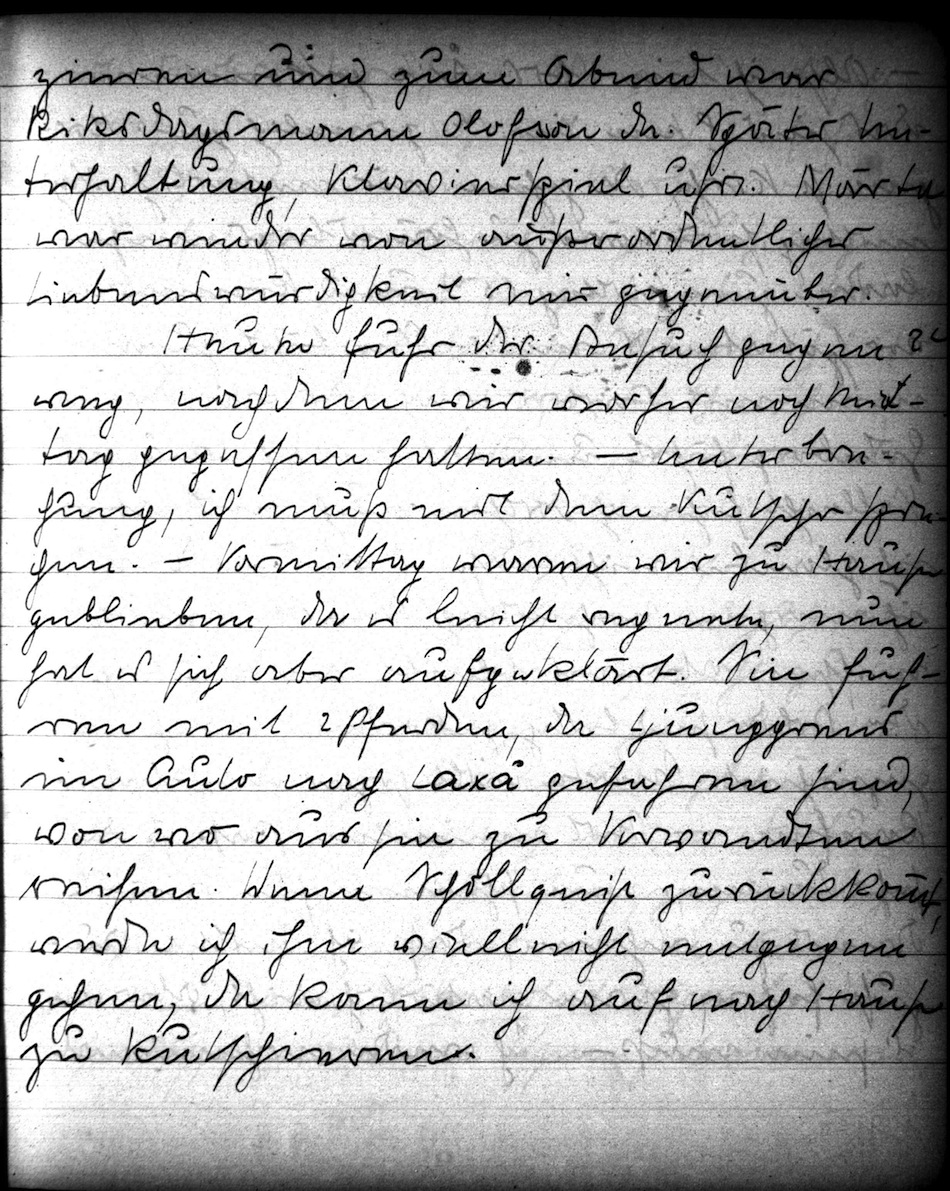 zieren und zum Abend war
Riksdagsmann Olofson da. Später Un-
terhaltung, Klavierspiel usw. Märta
war wieder von außerordentlicher
Liebenswürdigkeit mir gegenüber.
Heute fuhr der Besuch gegen 2
weg, nachdem wir vorher noch Mit-
tag gegessen hatten. — Unterbre-
chung, ich muß mit dem Kutscher spre-
chen. — Vormittag waren wir zu Hause
geblieben, da es leicht regnete, nun
hat es sich aber aufgeklärt. Sie fuh-
ren mit 2 Pferden, da Ljunggrens
im Auto nach Laxå gefahren sind,
von wo aus sie zu Verwandten
reisen. Wenn Schöllquist zurückkomt,
werde ich ihm vielleicht entgegen
gehen, da kann ich auf nach Hause
zu kutschieren.